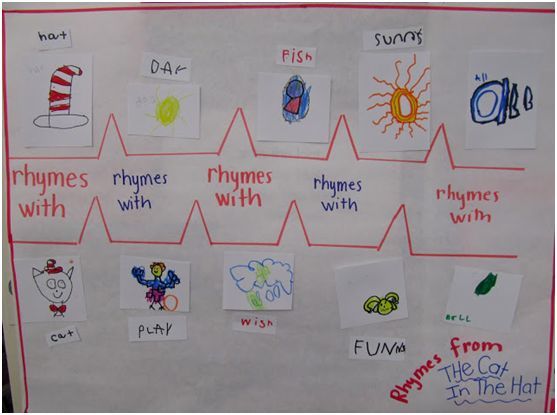 hat
DAY
FISH
SUNNY
All
rhymes
with
rhymes
with
rhymes
with
rhymes
with
rhymes
with
cat
PLAY
wish
FUNNY
BELL
Rhymes from
THe Cat
In The Hat